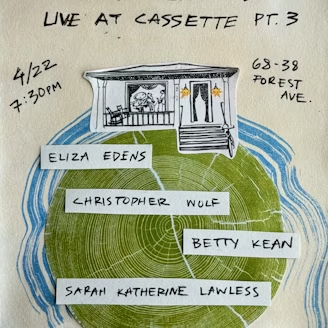 LIVE AT CASSETTE PT. 3
4/22
7:30PM
68-38
FOREST
AVE.
ELIZA EDENS
CHRISTOPHER WOLF
BETTY KEAN
SARAH KATHERINE LAWLESS